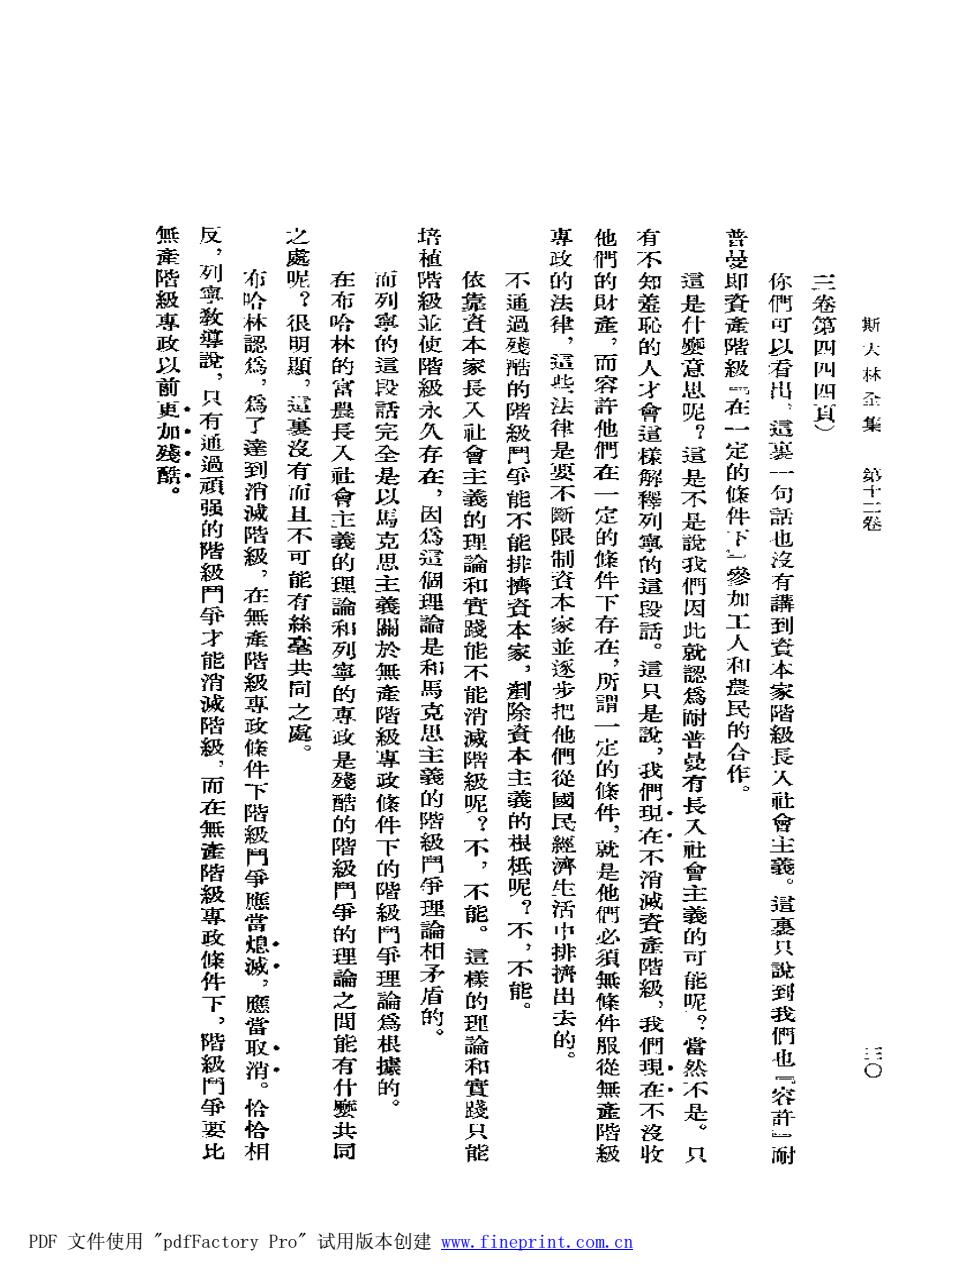 斯大林全集　第十二卷
三〇
三卷第四四四頁）
你們可以看出，這裏一句話也沒有講到資本家階級長入社會主義。這裏只說到我們也『容許』耐
普曼即資產階級『在一定的條件下』參加工人和農民的合作。
這是什麼意思呢？這是不是說我們因此就認爲耐普曼有長入社會主義的可能呢？當然不是。只
有不知羞恥的人才會這樣解釋列寧的這段話。這只是說，我們現在不消滅資產階級，我們現在不沒收
他們的財產，而容許他們在一定的條件下存在，所謂一定的條件，就是他們必須無條件服從無產階級
專政的法律，這些法律是要不斷限制資本家並逐步把他們從國民經濟生活中排擠出去的。
不通過殘酷的階級鬥爭能不能排擠資本家，剷除資本主義的根柢呢？不，不能。
依靠資本家長入社會主義的理論和實踐能不能消滅階級呢？不，不能。這樣的理論和實踐只能
培植階級並使階級永久存在，因爲這個理論是和馬克思主義的階級鬥爭理論相矛盾的。
而列寧的這段話完全是以馬克思主義關於無產階級專政條件下的階級鬥爭理論爲根據的。
在布哈林的富農長入社會主義的理論和列寧的專政是殘酷的階級鬥爭的理論之間能有什麼共同
之處呢？很明顯，這裏沒有而且不可能有絲毫共同之處。
布哈林認爲，爲了達到消滅階級，在無產階級專政條件下階級鬥爭應當熄滅，應當取消。恰恰相
反，列寧教導說，只有通過頑强的階級鬥爭才能消滅階級，而在無產階級專政條件下，階級鬥爭要比
無產階級專政以前更加殘酷。
PDF 文件使用 "pdfFactory Pro" 试用版本创建 www.fineprint.com.cn